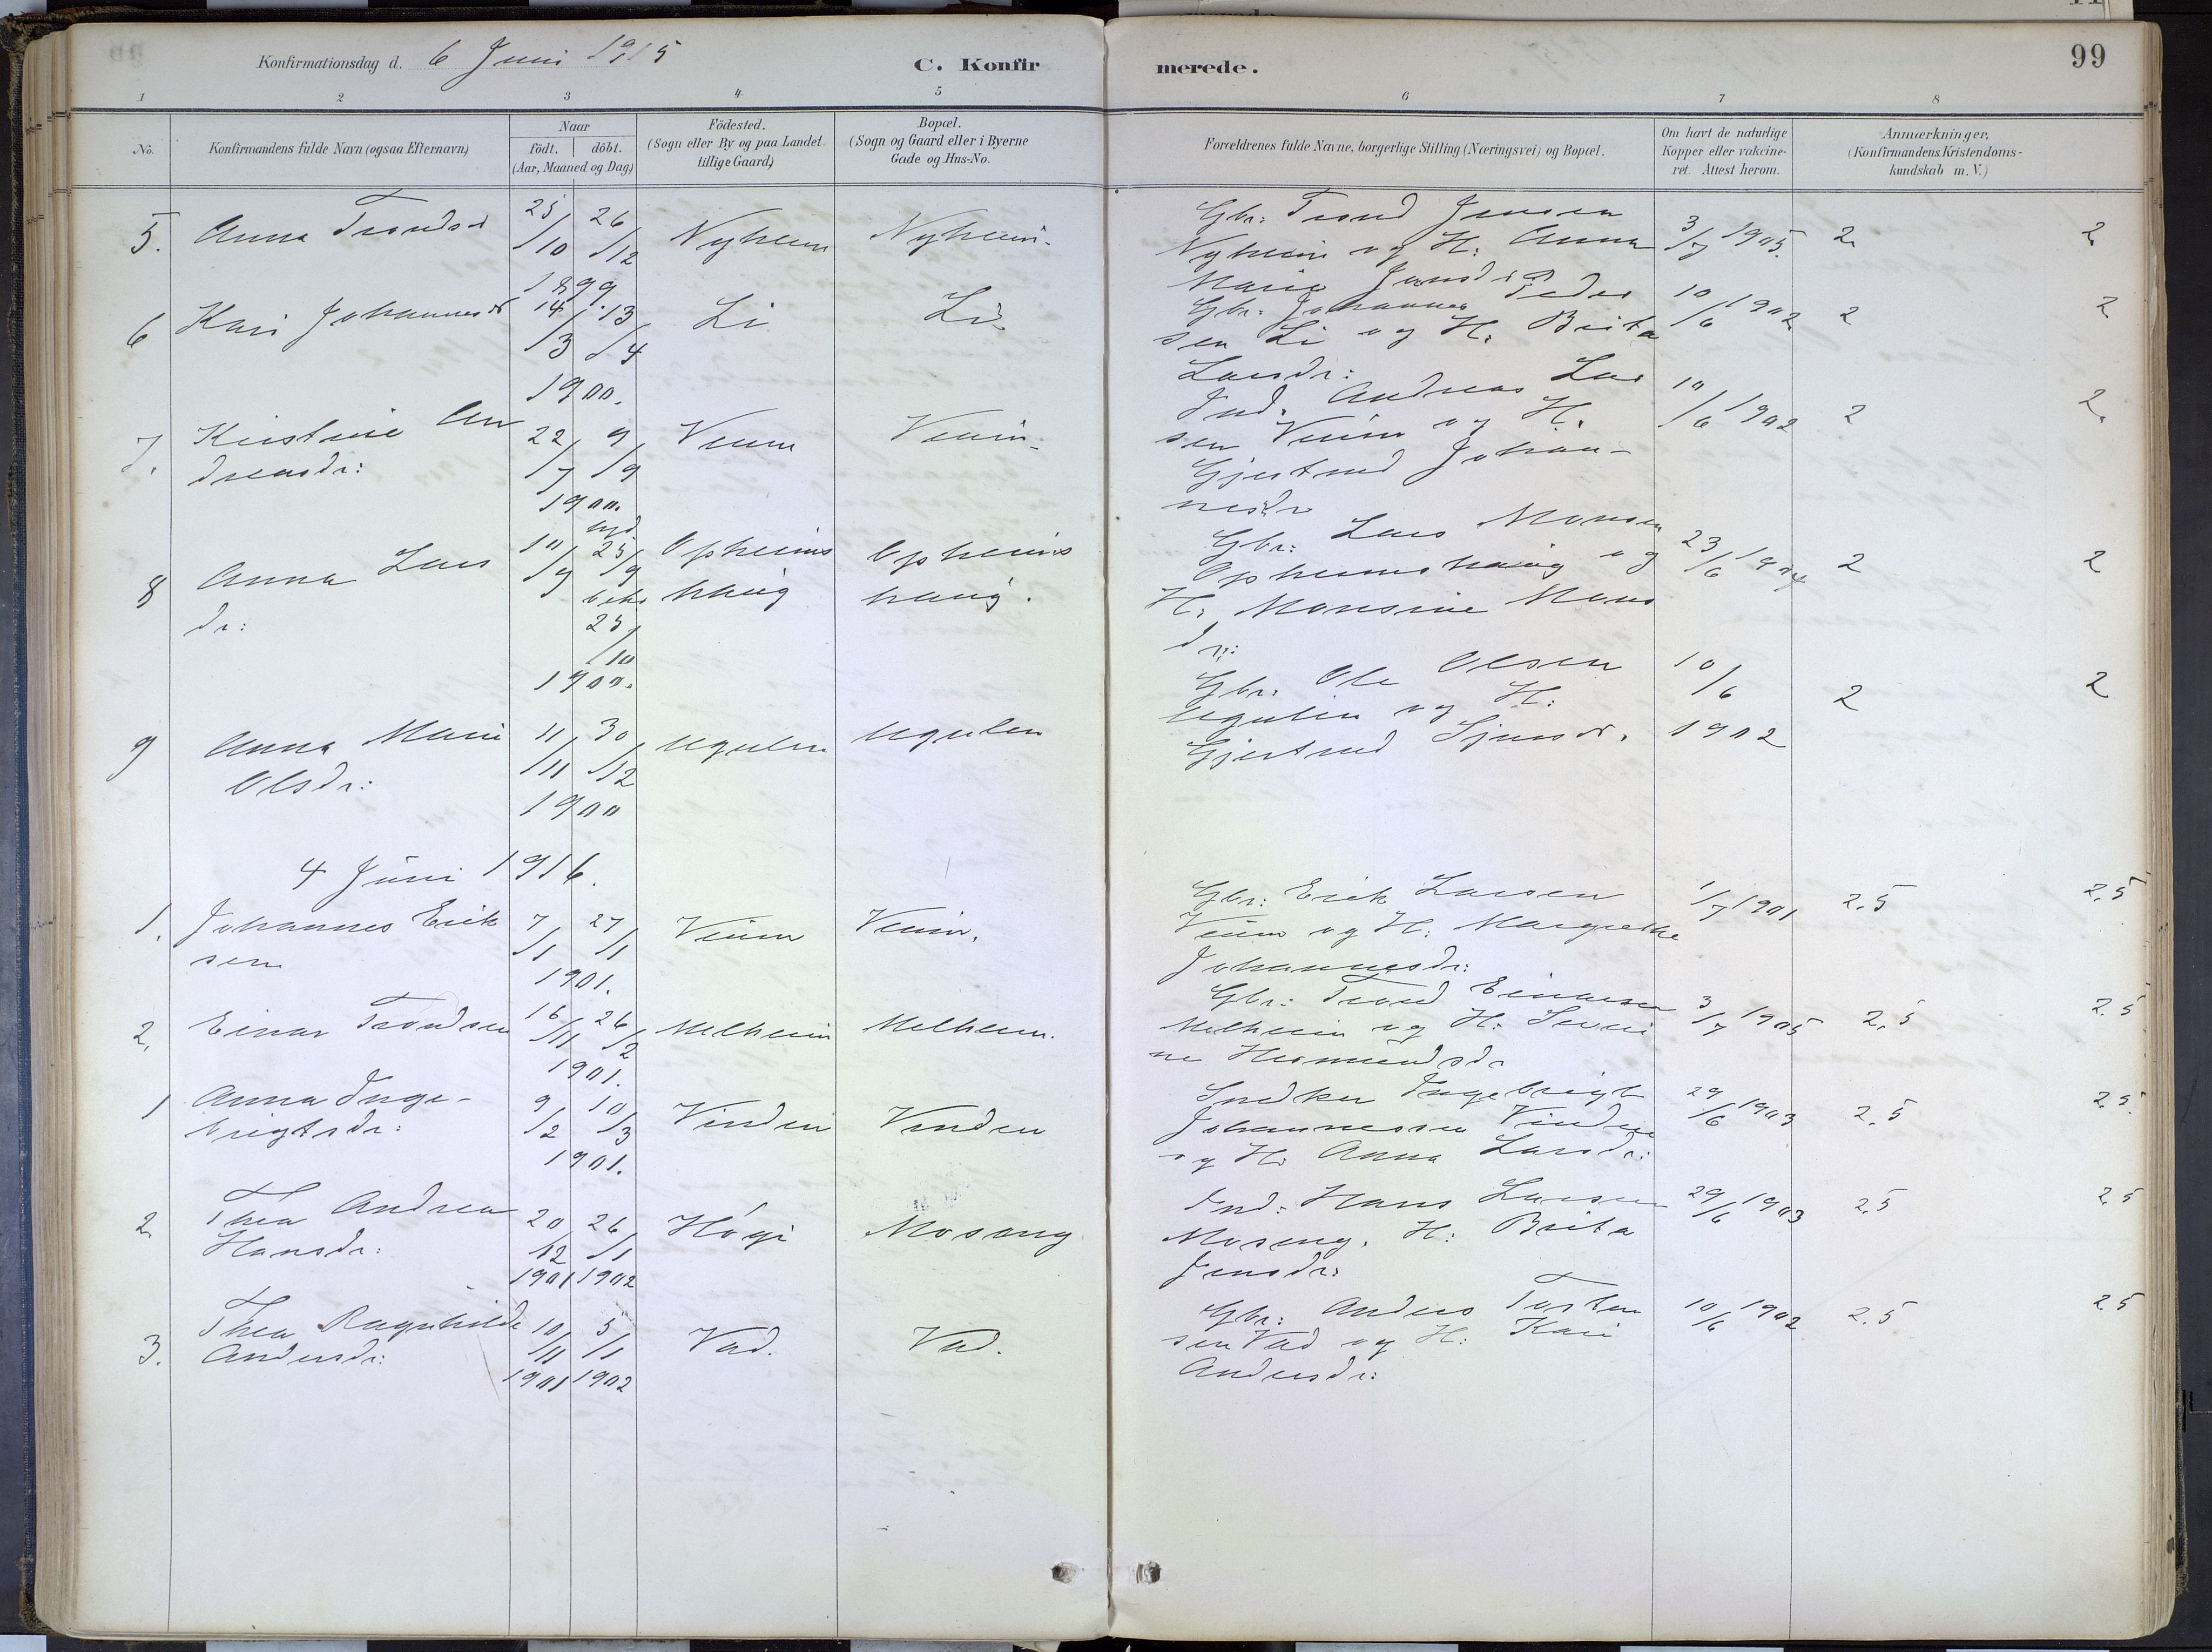 Konfirmationsdag d. 6 Juni 1915
C. Konfirmerede.
99
1 2 3 4 5 6 7 8
No.
Konfirmandens fulde Navn (ogsaa Efternavn)
Naar
födt. döbt.
(Aar, Maaned og Dag)
Födested.
(Sogn eller By og paa Landet
tillige Gaard)
Bopæl.
(Sogn og Gaard eller i Byerne
Gade og Hus-No.
Forældrenes fulde Navne, borgerlige Stilling (Næringsvei) og Bopæl.
Om havt de naturlige
Kopper eller vakcine-
ret. Attest herom.
Anmærkninger.
(Konfirmandens Kristendoms-
kundskab m. V.)
5. Anna Trondsd 25/10 26/12 1899 Nyheim Nyheim.
Gbr: Trond Jensen
Nyheim og H: Anna
Marie Jensdr
3/7 1905. 2. 2
6 Kari Johannesdr 14/3 13/4 1900. Li Li.
Gbr. Johannes Peder
sen Li og H. Brita
Larsdr:
10/6 1902 2 2
7. Kirstine An
dreasdr: 22/7 9/9 1900. Venim Venim
Ind. Andreas Lar
sen Venim og H.
Gjertrud Johan-
nesdr
10/6 1902 2 2.
8 Anna Lars
dr: 10/9 hjd. 25/9 bekr 25/10 1900. Opheims
haug Opheims
haug.
Gbr: Lars Monsen
Opheimshaug og
H: Monsine Mons
dr:
23/6 1904 2 2
9 Anna Marie
Olsdr: 11/11 30/12 1900 Ugulen Ugulen
Gbr. Ole Olsen
Ugulen og H:
Gjertrud Sjursdr.
10/6 1902 2 2
4 Juni 1916.
1. Johannes Erik
sen 7/1 27/1 1901. Venim Venim.
Gbr: Erik Larsen
Venim og H: Margrethe
Johannesdr:
1/7 1901 2.5 2,5
2. Einar Trondsen 16/11 26/2 1901. Melheim Melheim.
Gbr: Trond Einarsen
Melheim og H: Severi
ne Hermundsdr
3/7 1905 2.5 2.5
1 Anna Inge-
brigtsdr: 9/2 10/3 1901. Vinden Vinden
Snedker Ingebrigt
Johannessen Vinden
og H: Anna Larsdr:
29/6 1903 2.5 2.5.
2. Thea Andrea
Hansdr: 20/12 1901 26/1 1902 Högi Moseng
Ind: Hans Larsen
Moseng. H: Brita
Jensdr:
29/6 1903 2.5 2.5
3. Thea Ragnhilde
Andersdr: 10/11 1901 5/1 1902 Vad. Vad.
Gbr: Anders Torsten
sen Vad og H: Kari
Andersdr:
10/6 1902 2.5 2.5